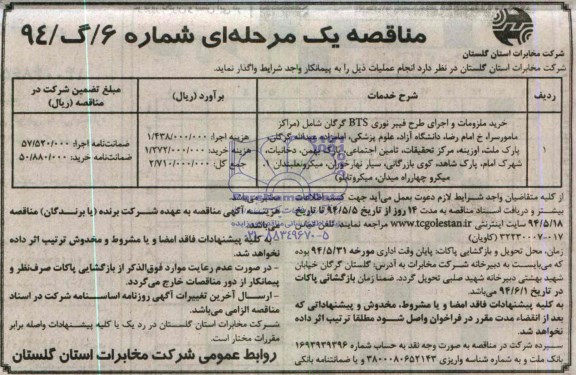 مناقصه یک مرحله‌ای شماره ۶/گ/۹۴
شرکت مخابرات استان گلستان
شرکت مخابرات استان گلستان در نظر دارد انجام عملیات ذیل را به پیمانکار واجد شرایط واگذار نماید.
ردیف
شرح خدمات
برآورد (ریال)
مبلغ تضمین شرکت در مناقصه (ریال)
۱
خرید ملزومات و اجرای طرح فیبر نوری BTS گرگان شامل (مراکز
مامورسرا، خ امام رضا، دانشگاه آزاد، علوم پزشکی، امامزاده عبداله گرگان،
پارک ملت، اوزینه، مرکز تحقیقات، تامین اجتماعی، بهمن، دخانیات،
شهرک امام، پارک شاهد، کوی بازرگانی، سیار نهارخوران، میکرونعلبندان ۱،
میکرو چهارراه میدان، میکروتابلو)
هزینه اجرا: ۱/۴۳۸/۰۰۰/۰۰۰
هزینه خرید: ۱/۲۷۲/۰۰۰/۰۰۰
جمع کل: ۲/۷۱۰/۰۰۰/۰۰۰
ضمانت‌نامه اجرا: ۵۷/۵۲۰/۰۰۰
ضمانت‌نامه خرید: ۵۰/۸۸۰/۰۰۰
از کلیه متقاضیان واجد شرایط لازم دعوت بعمل می‌آید جهت کسب اطلاعات
بیشتر و دریافت اسناد مناقصه به مدت ۱۴ روز از تاریخ ۹۴/۵/۵ تا تاریخ
۹۴/۵/۱۸ سایت اینترنتی www.tcgolestan.ir مراجعه نمایند. تلفن تماس
۳۲۲۳۰۰۷-۰۱۷ (کاویان)
زمان، محل تحویل و بازگشایی پاکات: پایان وقت اداری مورخه ۹۴/۵/۳۱ بوده
که می‌بایست به دبیرخانه شرکت مخابرات به آدرس: گلستان گرگان خیابان
شهید بهشتی دبیرخانه شهید صلبی تحویل گردد. ضمنا زمان بازگشائی پاکات
در تاریخ ۹۴/۶/۱ می‌باشد.
به کلیه پیشنهادات فاقد امضا و یا مشروط، مخدوش و پیشنهاداتی که
بعد از انقضاء مدت مقرر در فراخوان واصل شود مطلقا ترتیب اثر داده
نخواهد شد.
سپرده شرکت در مناقصه به صورت وجه نقد به حساب شماره ۱۶۹۳۹۳۹۳۹۶
بانک ملت و به شماره شناسه واریزی ۳۸۰۰۰۸۰۶۵۲۱۴۳ و یا ضمانتنامه بانکی
هزینه آگهی مناقصه به عهده شرکت برنده (یا برندگان) مناقصه
می‌باشد.
- به کلیه پیشنهادات فاقد امضا و یا مشروط و مخدوش ترتیب اثر داده
نخواهد شد.
- در صورت عدم رعایت موارد فوق‌الذکر از بازگشایی پاکات صرف‌نظر و
پیمانکار از دور مناقصات خارج می‌گردد.
- ارسال آخرین تغییرات آگهی روزنامه اساسنامه شرکت در اسناد
مناقصه الزامی می‌باشد.
شرکت مخابرات استان گلستان در رد یک یا کلیه پیشنهادات واصله برابر
مقررات مختار است.
روابط عمومی شرکت مخابرات استان گلستان